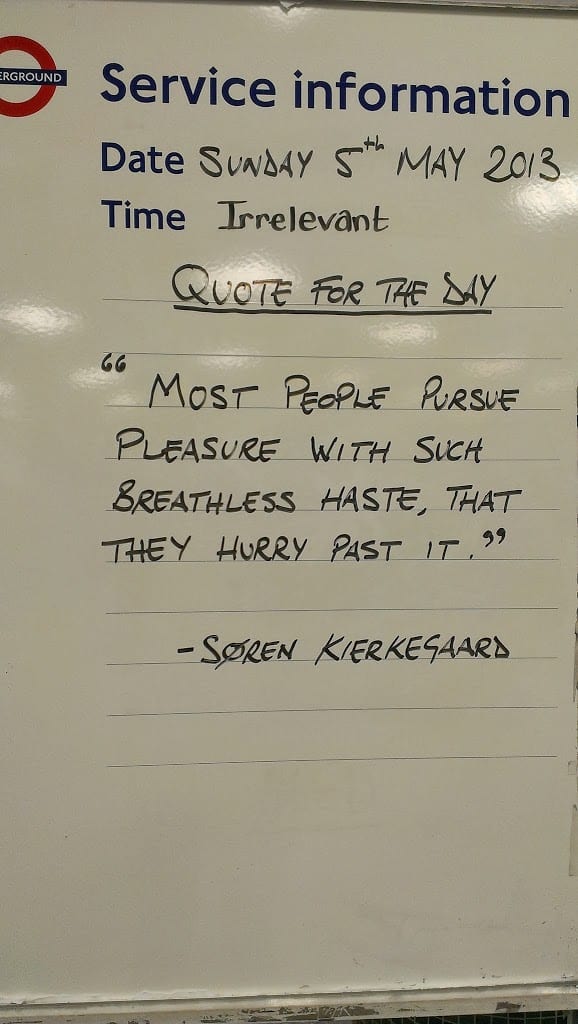 ERGROUND
Service information
Date SUNDAY 5th MAY 2013
Time Irrelevant
QUOTE FOR THE DAY
“ MOST PEOPLE PURSUE
PLEASURE WITH SUCH
BREATHLESS HASTE, THAT
THEY HURRY PAST IT.”
- SØREN KIERKEGAARD